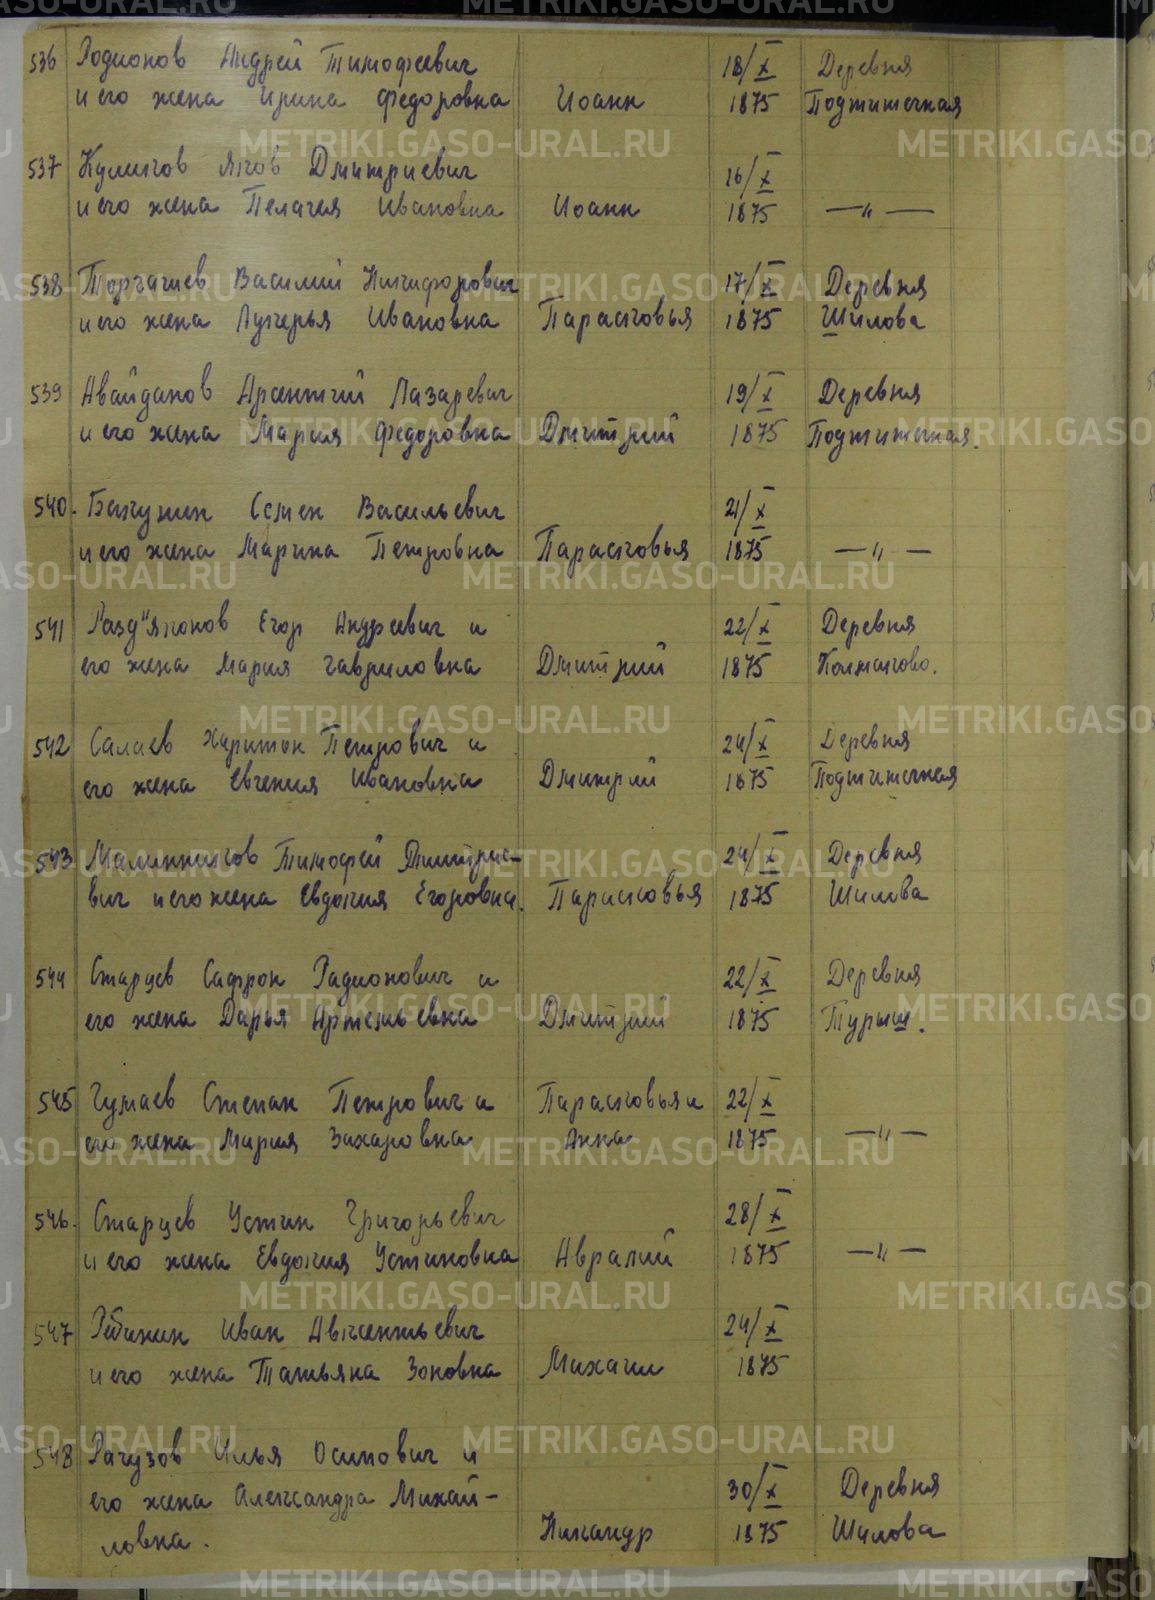 METRIKI.GASO-URAL.RU
536 Родионов Андрей Тимофеевич 18/X Деревня
и его жена Ирина Федоровна Иоанн 1875 Подтитечная
537 Куликов Яков Дмитриевич 16/X
и его жена Пелагея Ивановна Иоанн 1875 —"—
538 Торгашев Василий Никифорович 17/X Деревня
и его жена Лукерья Ивановна Парасковья 1875 Шилова
539 Авайданов Арсентий Лазаревич 19/X Деревня
и его жена Мария Федоровна Дмитрий 1875 Подтитечная.
540. Бакунин Семен Васильевич 21/X
и его жена Марина Петровна Парасковья 1875 —"—
541 Разд"яконов Егор Андреевич и 22/X Деревня
его жена Мария Гавриловна Дмитрий 1875 Колмаково.
542 Салаев Харитон Петрович и 24/X Деревня
его жена Евгения Ивановна Дмитрий 1875 Подтитечная
543 Малинников Тимофей Дмитрие-24/X Деревня
вич и его жена Евдокия Егоровна. Парасковья 1875 Шилова
544 Старцев Сафрон Радионович и 22/X Деревня
его жена Дарья Артемьевна Дмитрий 1875 Турыш.
545 Чумаев Степан Петрович и Парасковья и 22/X
его жена Мария Захаровна Анна 1875 —"—
546. Старцев Устин Григорьевич 28/X
и его жена Евдокия Устиновна Аврамий 1875 —"—
547 Рябинин Иван Авксентьевич 24/X
и его жена Татьяна Зоновна Михаил 1875
548 Рагузов Илья Осипович и
его жена Александра Михай- 30/X Деревня
ловна. Никандр 1875 Шилова